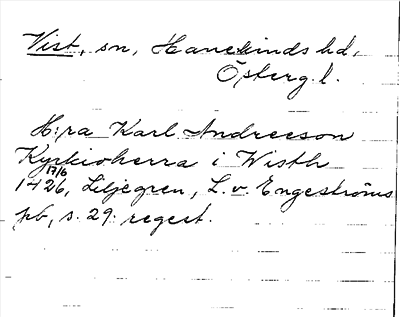 Vist, sn, Hanekinds hd,
Österg. l.
H:ra Karl Andreeson
Kyrkioherra i Wisth
17/6
1426, Liljegren, L. v. Engeströms
pb, s. 29. regest.